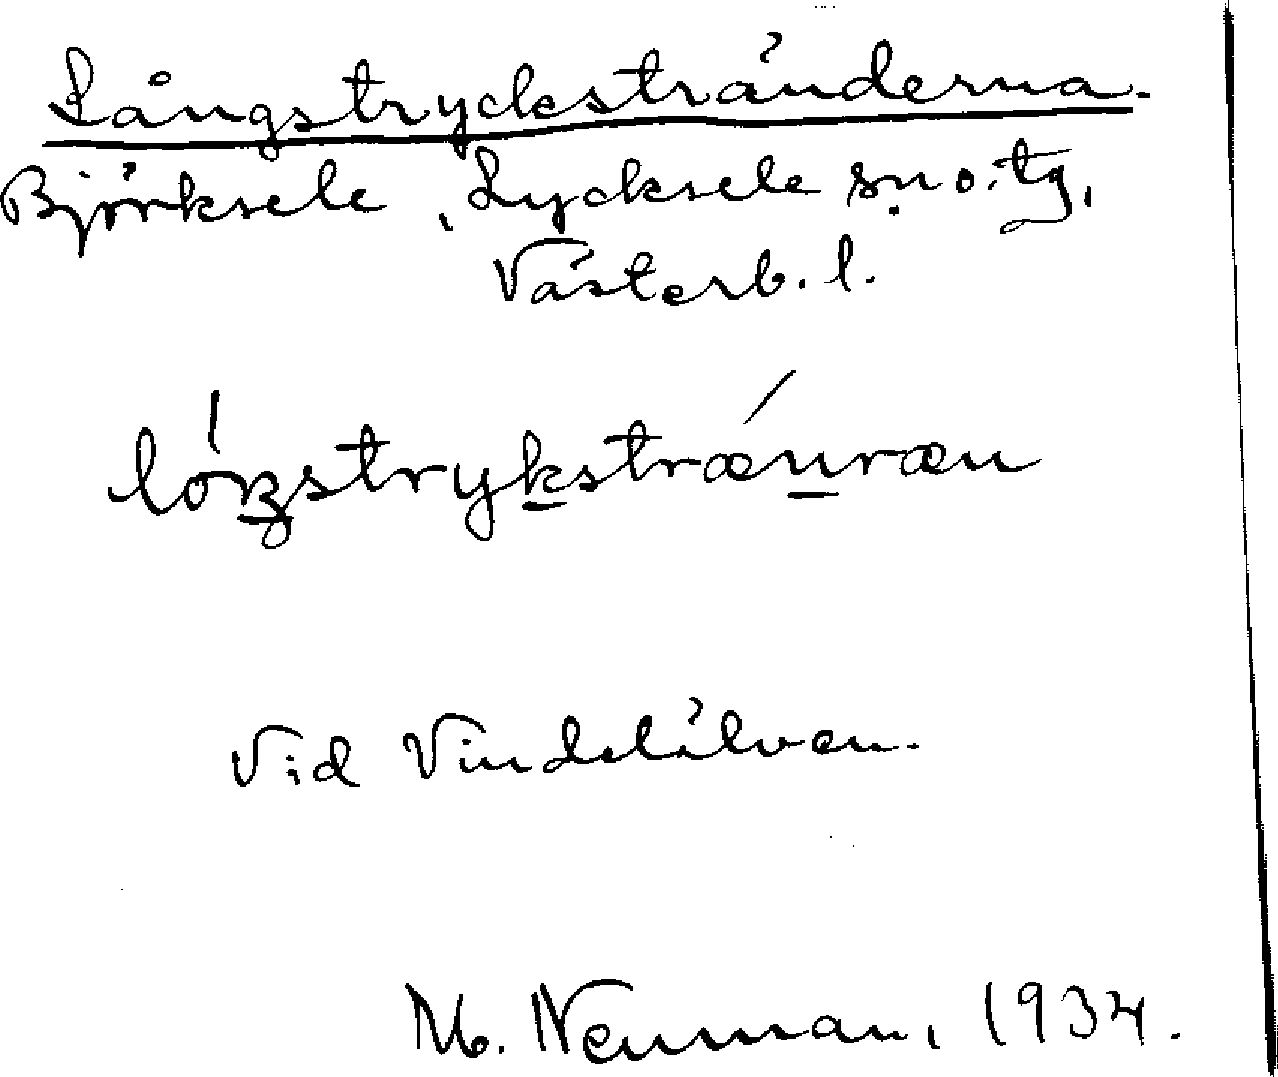 Långstryckstränderna.
Björksele, Lycksele sn o. tg,
Västerb. l.
lóŋstrykstrænræn
Vid Vindelälven.
M. Neuman, 1934.